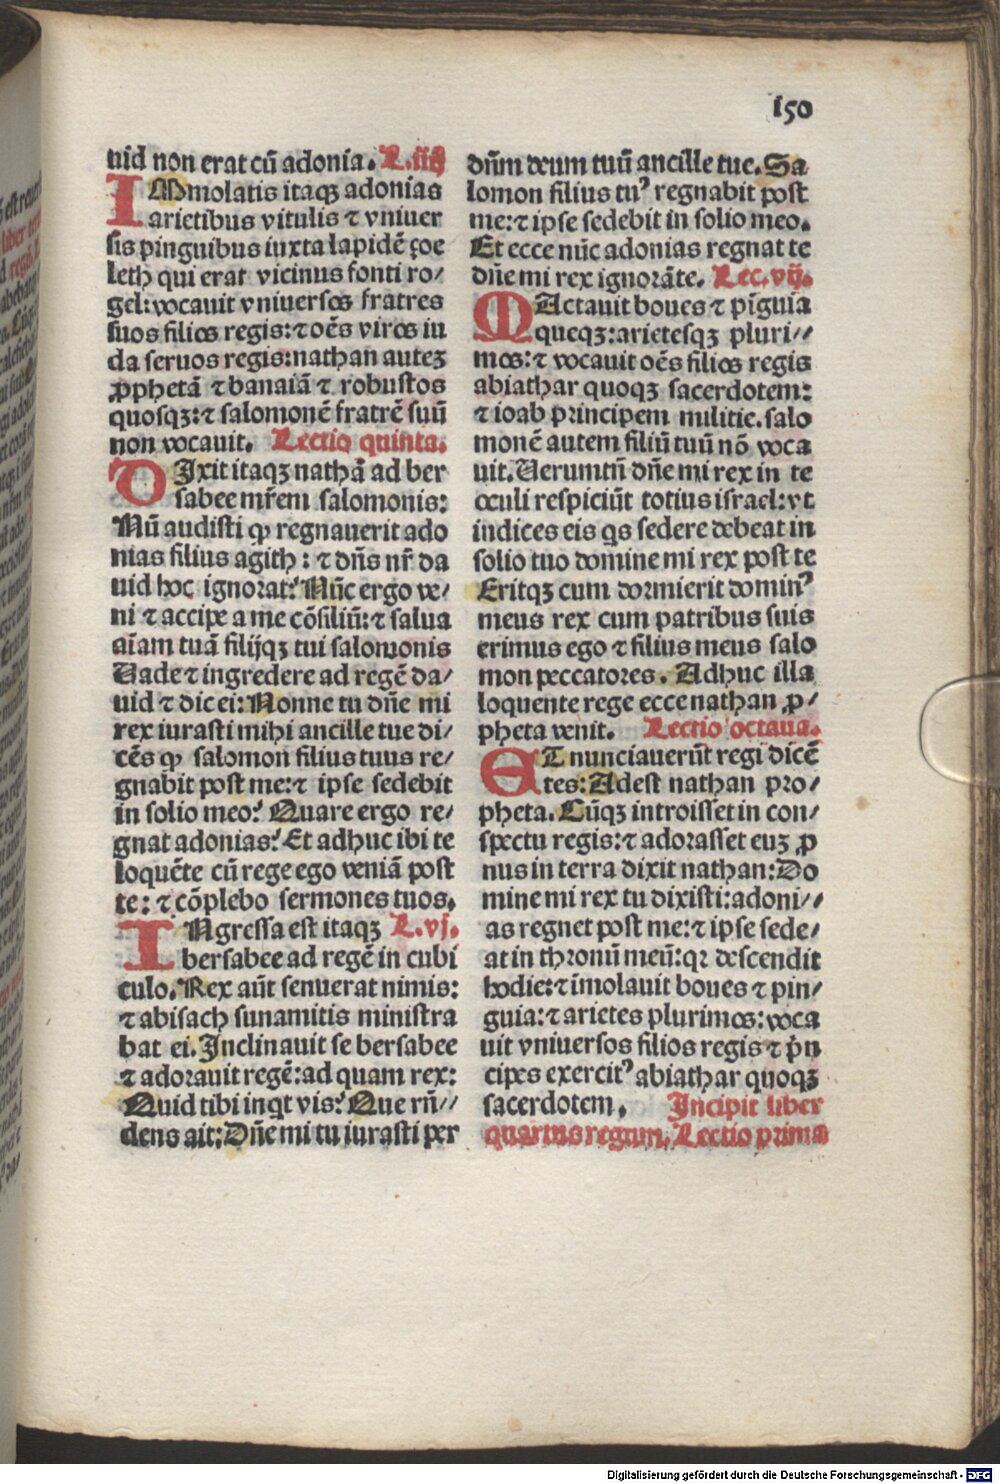 150
uid non erat cũ adonia. L. iiij
IMmolatis itaqꝫ adonias
arietibus vitulis ⁊ vniuer
sis pinguibus iuxta lapidẽ ʒoe
leth qui erat vicinus fonti ro/
gel: vocauit vniuersos fratres
suos filios regis: ⁊ oẽs viros iu
da seruos regis: nathan auteꝫ
ꝓphetã ⁊ banaiã ⁊ robustos
quosqꝫ: ⁊ salomonẽ fratrẽ suũ
non vocauit. Lectio quinta.
DIxit itaqꝫ nathã ad ber
sabee mr̃em salomonis:
Nũ audisti ꝙ regnauerit ado
nias filius agith: ⁊ dñs nr̃ da
uid hoc ignorat? Nũc ergo ve/
ni ⁊ accipe a me cõsiliũ: ⁊ salua
aĩam tuã filijqꝫ tui salomonis
Uade ⁊ ingredere ad regẽ da/
uid ⁊ dic ei: Nonne tu dñe mi
rex iurasti mihi ancille tue di/
cẽs ꝙ salomon filius tuus re/
gnabit post me: ⁊ ipse sedebit
in solio meo? Quare ergo re/
gnat adonias? Et adhuc ibi te
loquẽte cũ rege ego veniã post
te: ⁊ cõplebo sermones tuos.
INgressa est itaqꝫ L. vj.
bersabee ad regẽ in cubi
culo. Rex aũt senuerat nimis:
⁊ abisach sunamitis ministra
bat ei. Inclinauit se bersabee
⁊ adorauit regẽ: ad quam rex:
Quid tibi inqt vis? Que rñ//
dens ait: Dñe mi tu iurasti per
dñm deum tuũ ancille tue. Sa
lomon filius tuꝰ regnabit post
me: ⁊ ipse sedebit in solio meo.
Et ecce nũc adonias regnat te
dñe mi rex ignorãte. Lec. vij.
MActauit boues ⁊ pĩguia
queqꝫ: arietesqꝫ pluri//
mos: ⁊ vocauit oẽs filios regis
abiathar quoqꝫ sacerdotem:
⁊ ioab principem militie. salo
monẽ autem filiũ tuũ nõ voca
uit. Uerumtñ dñe mi rex in te
oculi respiciũt totius israel: vt
indices eis qs sedere debeat in
solio tuo domine mi rex post te
Eritqꝫ cum dormierit dominꝰ
meus rex cum patribus suis
erimus ego ⁊ filius meus salo
mon peccatores. Adhuc illa
loquente rege ecce nathan ꝓ/
pheta venit. Lectio octaua.
ET nunciauerũt regi dicẽ
tes: Adest nathan pro/
pheta. Cũqꝫ introisset in con/
spectu regis: ⁊ adorasset euꝫ ꝓ
nus in terra dixit nathan: Do
mine mi rex tu dixisti: adoni//
as regnet post me: ⁊ ipse sede/
at in thronũ meũ: qꝛ descendit
hodie: ⁊ imolauit boues ⁊ pin/
guia: ⁊ arietes plurimos: voca
uit vniuersos filios regis ⁊ pñ
cipes exercitꝰ abiathar quoqꝫ
sacerdotem. Incipit liber
quartus regum. Lectio prima
Digitalisierung gefördert durch die Deutsche Forschungsgemeinschaft - DFG